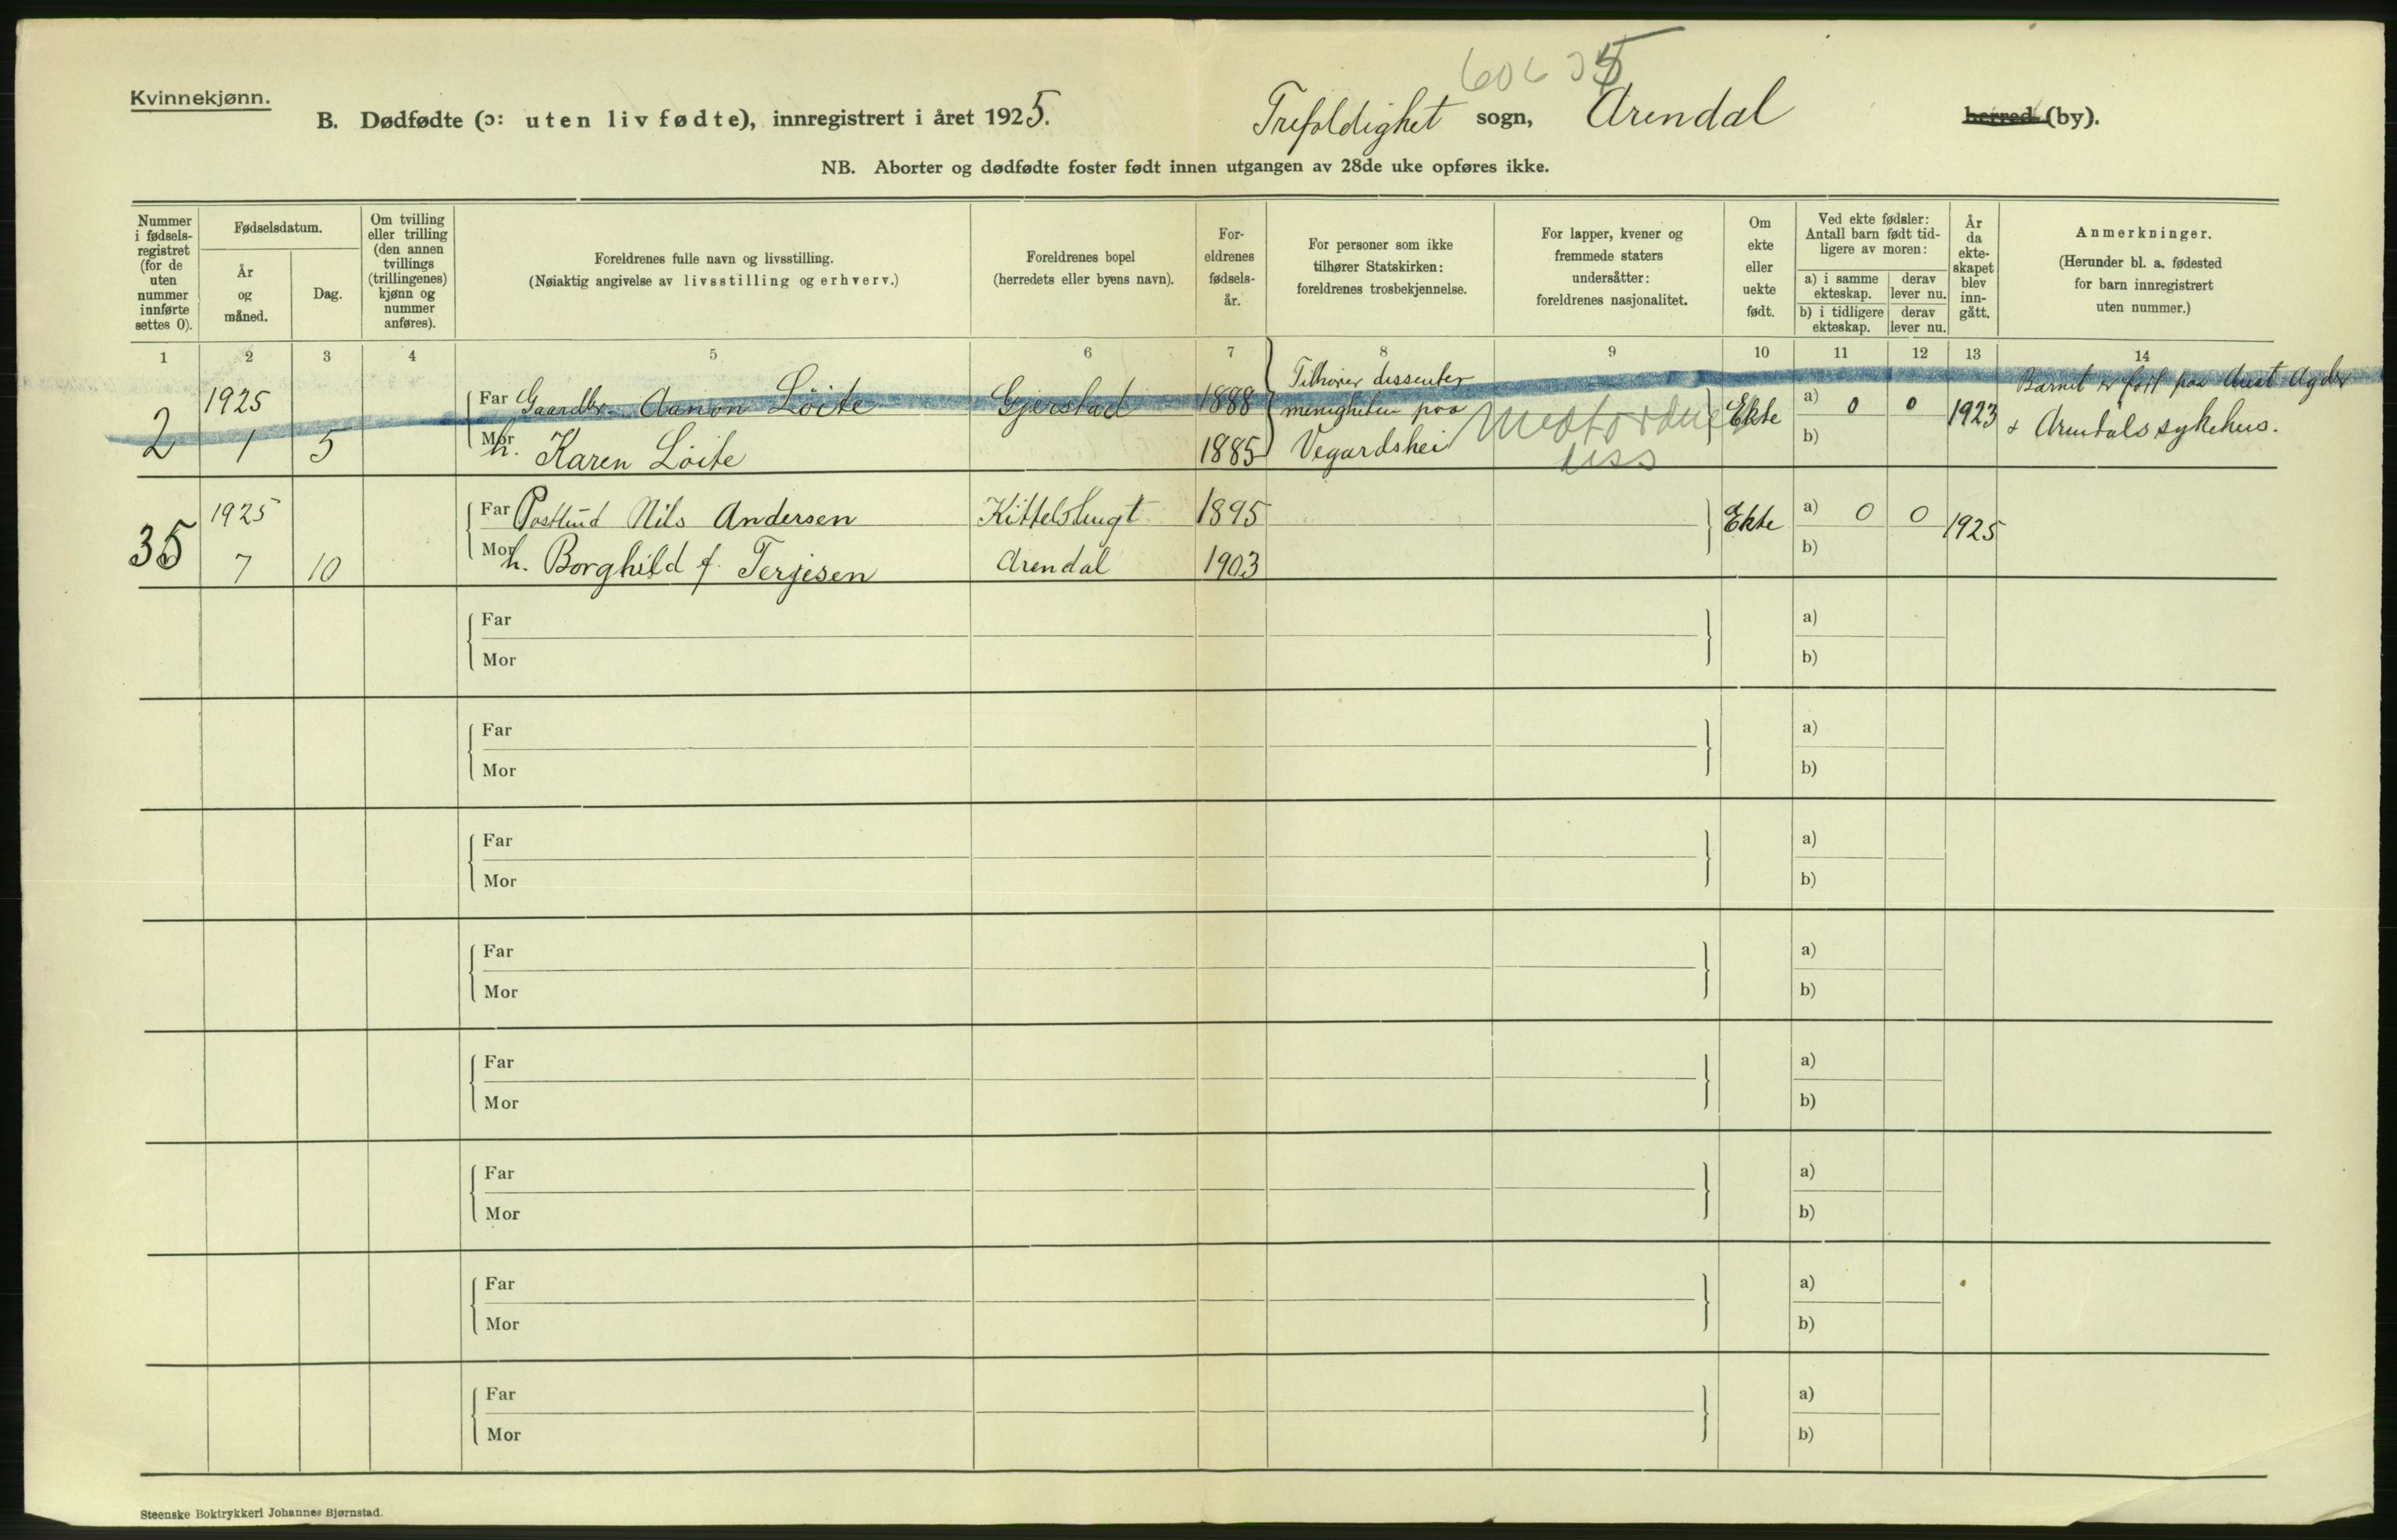 Kvinnekjønn.
B. Dødfødte (ɔ: uten liv fødte), innregistrert i året 1925.
Trefoldighet sogn, Arendal herred (by).
NB. Aborter og dødfødte foster født innen utgangen av 28de uke opføres ikke.
Nummer
i fødsels-
registret
(for de
uten
nummer
innførte
settes 0).
Fødselsdatum.
År
og
måned.
Dag.
Om tvilling
eller trilling
(den annen
tvillings
(trillingenes)
kjønn og
nummer
anføres).
Foreldrenes fulle navn og livsstilling.
(Nøiaktig angivelse av livsstilling og erhverv.)
Foreldrenes bopel
(herredets eller byens navn).
For-
eldrenes
fødsels-
år.
For personer som ikke
tilhører Statskirken:
foreldrenes trosbekjennelse.
For lapper, kvener og
fremmede staters
undersåtter:
foreldrenes nasjonalitet.
Om
ekte
eller
uekte
født.
Ved ekte fødsler:
Antall barn født tid-
ligere av moren:
a) i samme
ekteskap.
derav
lever nu.
b) i tidligere
ekteskap.
derav
lever nu.
År
da
ekte-
skapet
blev
inn-
gått.
Anmerkninger.
(Herunder bl. a. fødested
for barn innregistrert
uten nummer.)
1 2 3 4 5 6 7 8 9 10 11 12 13 14
2 1925 1 5
Far Gaardbr. Aanon Löite Gjerstad 1888
Mor h. Karen Löite 1885
Tilhører dissenter
menigheten paa
Vegardshei
diss
Ekte a) 0 0 1923
b)
Barnet er født paa Aust Agder
Arendals sykehus.
35 1925 7 10
Far Postbud Nils Andersen Kittelsbugt 1895
Mor h. Borghild f. Terjesen Arendal 1903
Ekte a) 0 0 1925
b)
Far a)
Mor b)
Far a)
Mor b)
Far a)
Mor b)
Far a)
Mor b)
Far a)
Mor b)
Far a)
Mor b)
Far a)
Mor b)
Far a)
Mor b)
Steenske Boktrykkeri Johannes Bjørnstad.